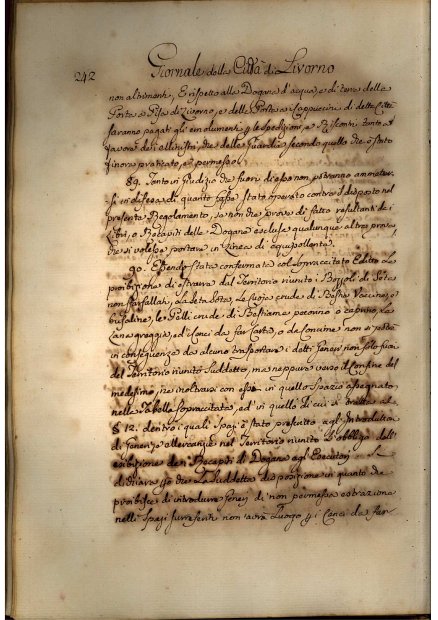 242
Giornale della Città di Livorno
non altrimenti. E rispetto alle Dogane d'acqua, e di terra della
Porta a Pisa di Livorno, e della Porta a Cappuccini di detta Città
saranno pagati gli emolumenti p le spedizioni, e Riscontri tanto a
favore dei Ministri, che delle Guardie secondo quello che è stato
finora praticato, e permesso.
89. Tanto in Giudizio che fuori di esso non potranno ammetter=
si in difesa di quanto fosse stato operato contro il disposto nel
presente Regolamento, se non che prove di fatto resultanti dai
Libri, o Recapiti delle Dogane escluse qualunque altra prova
che si volesse portare in linea di equipollente.
90. Essendo stata confermata col sopraccitato Editto la
proibizione di estrarre dal Territorio riunito i Bozzoli da Seta
non sfarfallati, la Seta soda, le Cuoja crude di Bestie Vaccine, e
bufaline, le Pelli crude di Bestiame pecorino o caprino, la
Lana greggia, ed i Cenci da far Carta, o da Concime non si potrà
in conseguenza da alcuno trasportare i detti Generi non solo fuori
del Territorio riunito suddetto, ma neppure verso il Confine del
medesimo, ne inoltrarsi con essi in quello Spazio assegnato
nelle Tabelle sopraccitate, ed in quello di cui si tratta al
§ 12. dentro i quali spazi è stato prescritto agl'Introduttori
di Generi allevcanti nel Territorio riunito l'obbligo dell'
esibizione dei Recapiti di Dogana agl'Esecutori
dichiaro che la suddetta disposizione in quanto che
proibisce di introdurre Generi di non permessa estrazione
nelli spazi surreferiti non avrà Luogo p i Cenci da far=